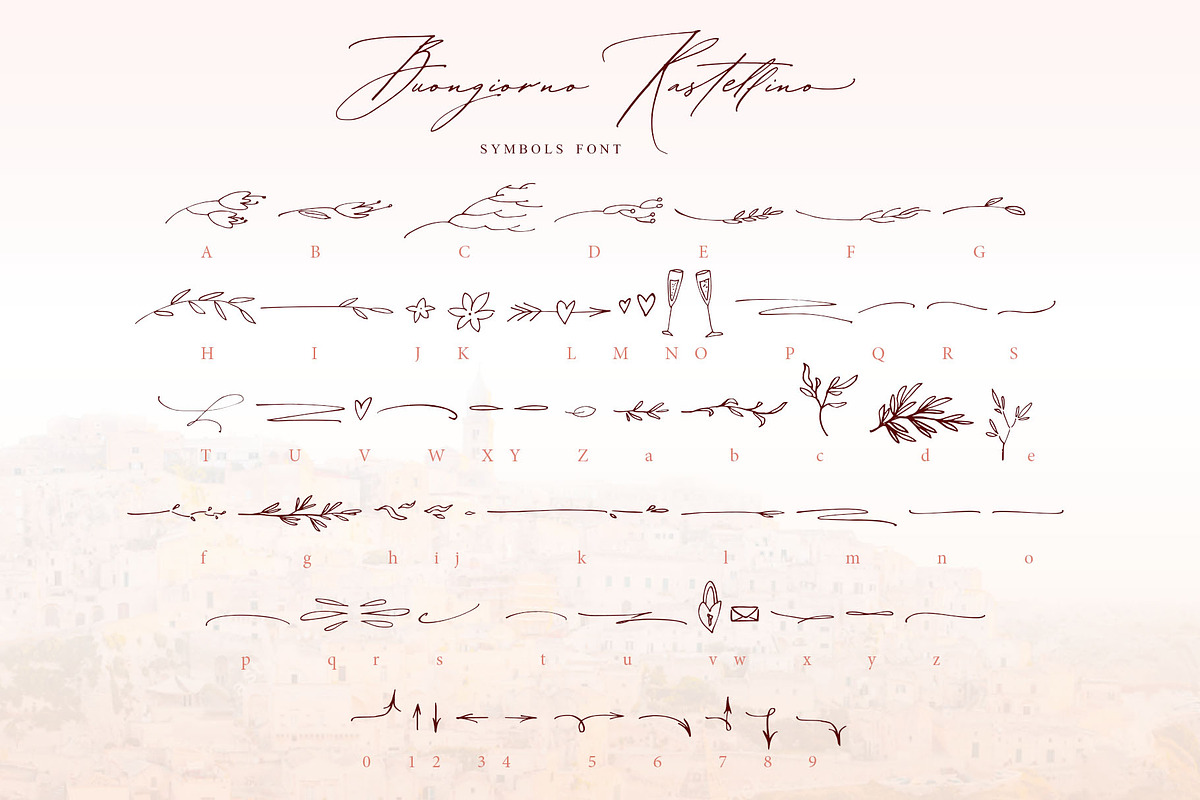 Buongiorno Kastellino
SYMBOLS FONT
A B C D E F G
H I J K L M N O P Q R S
T U V W X Y Z a b c d e
f g h i j k l m n o
p q r s t u v w x y z
0 1 2 3 4 5 6 7 8 9